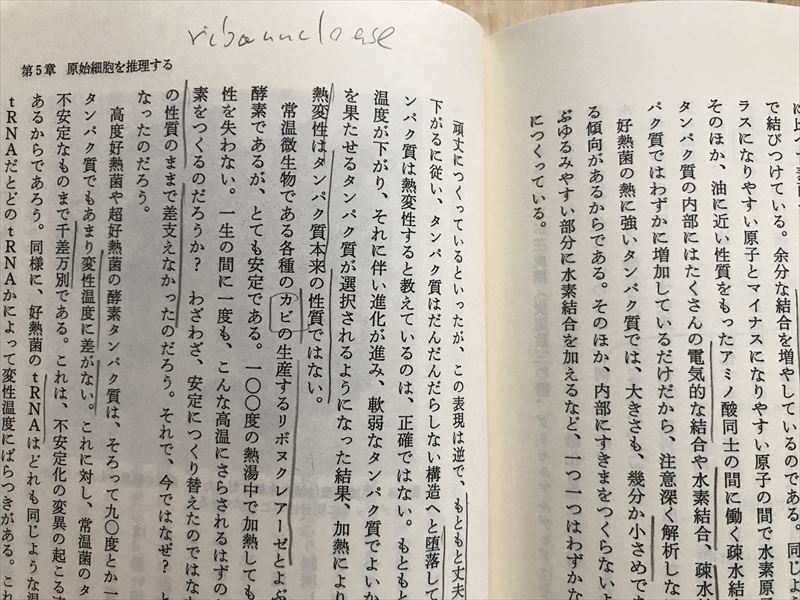 に比べ
で結びつけている。余分な結合を増やしているのである。同じよう
ラスになりやすい原子とマイナスになりやすい原子の間で水素原
そのほか、油に近い性質をもったアミノ酸同士の間に働く疎水結
タンパク質の内部にはたくさんの電気的な結合や水素結合、疎水
パク質ではわずかに増加しているだけだから、注意深く解析しな
好熱菌の熱に強いタンパク質では、大きさも、幾分か小さめで
る傾向があるからである。そのほか、内部にすきまをつくらないよ
ぶゆるみやすい部分に水素結合を加えるなど、一つ一つはわずかな
につくっている。
ribonuclease
第5章 原始細胞を推理する
頑丈につくっているといったが、この表現は逆で、もともと丈夫
下がるに従い、タンパク質はだんだんだらしない構造へと堕落して
ンパク質は熱変性すると教えているのは、正確ではない。もともと
温度が下がり、それに伴い進化が進み、軟弱なタンパク質でよいか
を果たせるタンパク質が選択されるようになった結果、加熱により
熱変性はタンパク質本来の性質ではない。
常温微生物である各種のカビの生産するリボヌクレアーゼとよぶ
酵素であるが、とても安定である。一〇〇度の熱湯中で加熱しても
性を失わない。一生の間に一度も、こんな高温にさらされるはずの
素をつくるのだろうか？ わざわざ、安定につくり替えたのではな
の性質のままで差支えなかったのだろう。それで、今ではなぜ？ と
なったのだろう。
高度好熱菌や超好熱菌の酵素タンパク質は、そろって九〇度とか一
タンパク質でもあまり変性温度に差がない。これに対し、常温菌のタ
不安定なものまで千差万別である。これは、不安定化の変異の起こる
あるからであろう。同様に、好熱菌のtRNAはどれも同じような温
tRNAだとどのtRNAかによって変性温度にばらつきがある。これ